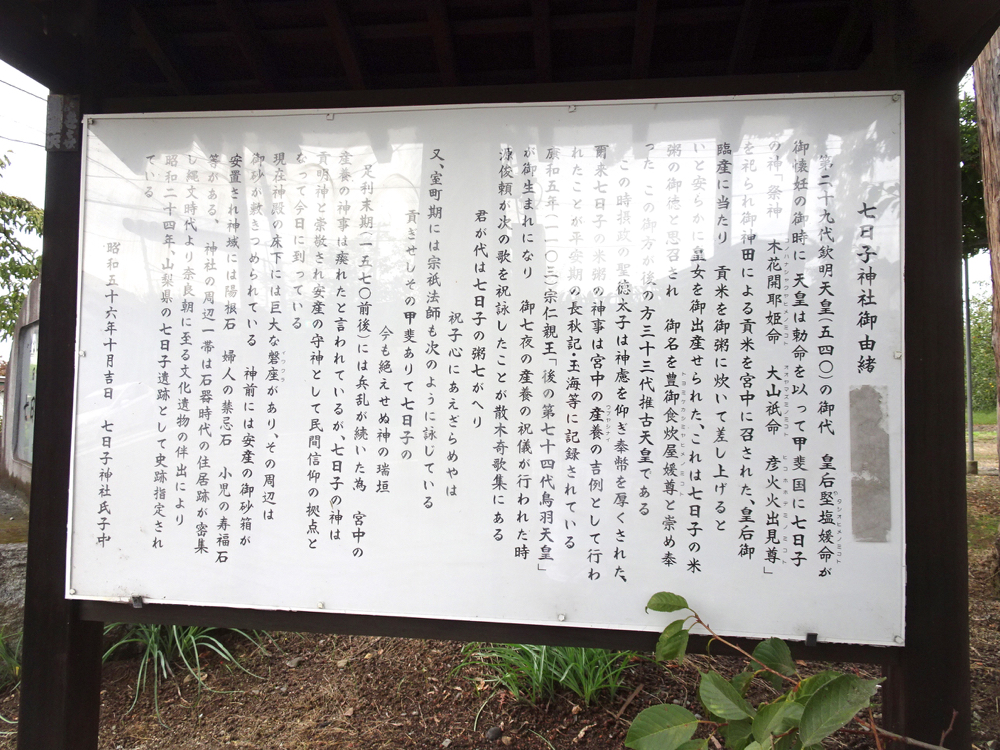 七日子神社御由緒
第二十九代欽明天皇(五四〇)の御代 皇后堅塩媛命が
御懐妊の御時に 天皇は勅命を以って甲斐一国に七日子
の神「祭神 木花開耶姫命 大山祇命 彦火火出見尊」
を祀られ御神田による貢米を宮中に召された、皇后御
臨産に当たり 貢米を御粥に炊いて差し上げると
いと安らかに皇女を御出産せられた、これは七日子の米
粥の御徳と思召され 御名を豊御食炊屋媛尊と崇め奉
った この御方が後の方三十三代推古天皇である
この時摂政の聖徳太子は神慮を仰ぎ奉幣を厚くされた、
爾来七日子の米粥の神事は宮中の産養の吉例として行わ
れたことが平安期の長秋記・玉海等に記録されている
康和五年(一一〇三)宗仁親王「後の第七十四代鳥羽天皇」
が御生まれになり 御七夜の産養の祝儀が行われた時
源俊頼が次の歌を祝詠したことが散木奇歌集にある
君が代は七日子の粥七がへり
祝子心にあえざらめやは
又、室町期には宗祇法師も次のように詠じている
貢ぎせしその甲斐ありて七日子の
今も絶えせぬ神の瑞垣
足利末期(一五七〇前後)には兵乱が続いた為 宮中の
産養の神事は廃れたと言われているが、七日子の神は
貢明神と崇敬され安産の守神として民間信仰の拠点と
なって今日に到っている
現在神殿の床下には巨大な磐座があり、その周辺は
御砂が敷きつめられている 神前には安産の御砂箱が
安置され神域には陽根石 婦人の禁忌石 小児の寿福石
等がある、 神社の周辺一帯は石器時代の住居跡が密集
し縄文時代より奈良朝に至る文化遺物の伴出により
昭和二十四年、山梨県の七日子遺跡として史跡指定され
ている
昭和五十六年十月吉日 七日子神社氏子中